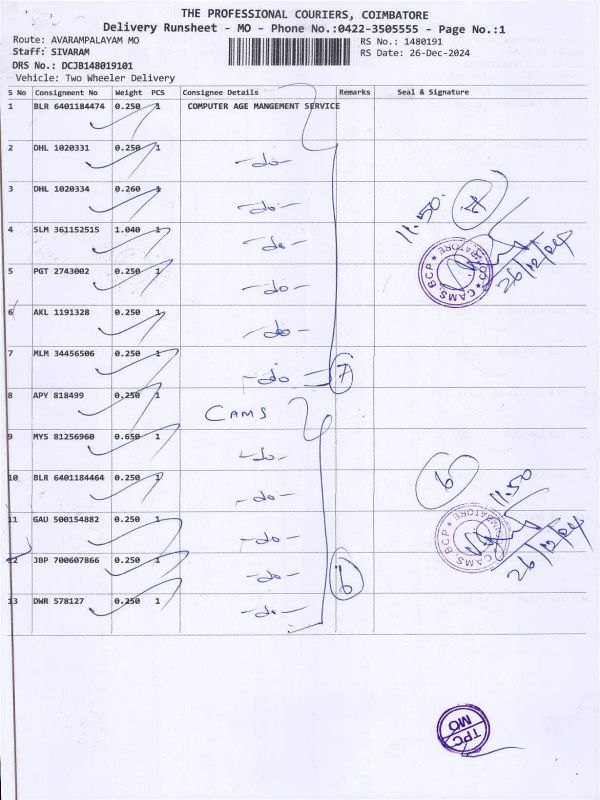 THE PROFESSIONAL COURIERS, COIMBATORE
Delivery Runsheet - MO - Phone No.:0422-3505555 - Page No.:1
Route: AVARAMPALAYAM MO RS No.: 1480191
Staff: SIVARAM RS Date: 26-Dec-2024
DRS No.: DCJB148019101
Vehicle: Two Wheeler Delivery
S No Consignment No Weight PCS Consignee Details Remarks Seal & Signature
1 BLR 6401184474 0.250 1 COMPUTER AGE MANGEMENT SERVICE
2 DHL 1020331 0.250 1 -do-
3 DHL 1020334 0.260 1 -do-
4 SLM 361152515 1.040 1 -do-
5 PGT 2743002 0.250 1 -do-
6 AKL 1191328 0.250 1 -do-
7 MLM 34456506 0.250 1 -do- 7
11.50 7
CAMS, BCP
26/12/24
8 APY 818499 0.250 1 CAMS
9 MYS 81256960 0.650 1 -do-
10 BLR 6401184464 0.250 1 -do-
11 GAU 500154882 0.250 1 -do-
12 JBP 700607866 0.250 1 -do- 6
13 DWR 578127 0.250 1 -do-
6 11.50
CAMS, BCP
26/12/24
TPC
MO